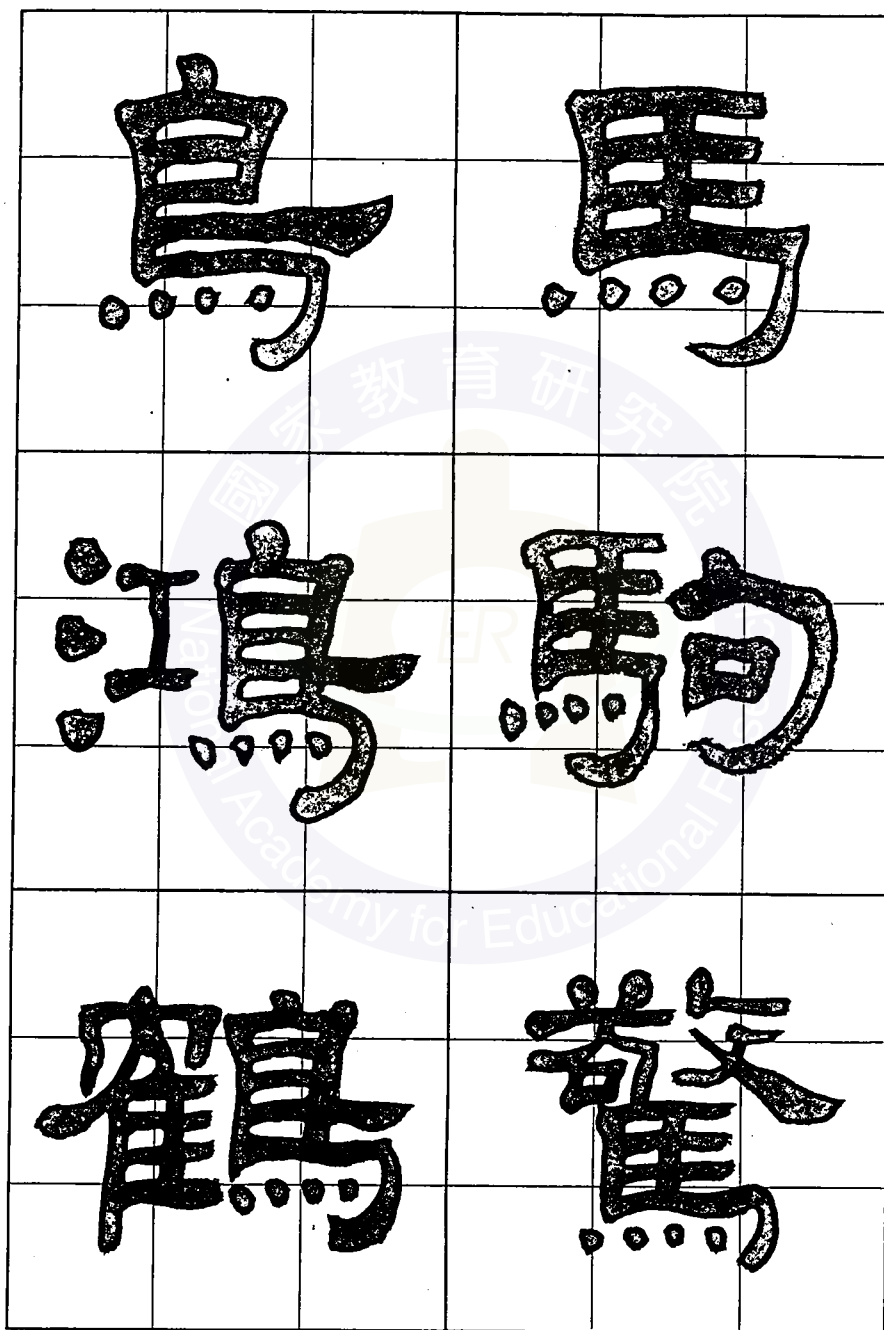 馬
駒
驚
鳥
鴻
鶴
國家教育研究院
National Academy for Educational Research